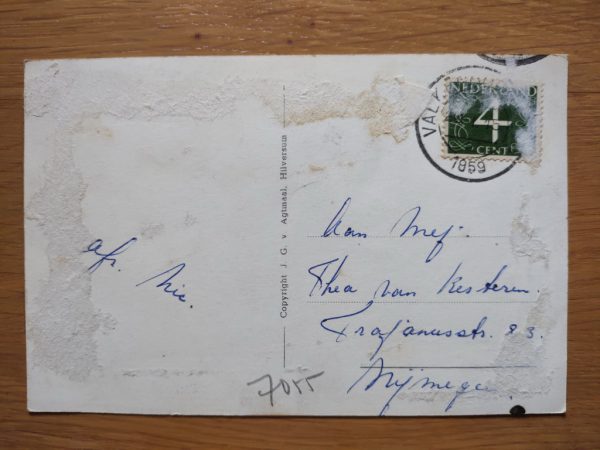 NEDERLAND
4
CENT
VALK
1959
Aan Mej.
Thea van Kesteren.
Trajanusstr. 23.
Nijmegen
afz. Nic.
Copyright J. G. v. Agtmaal, Hilversum
7055